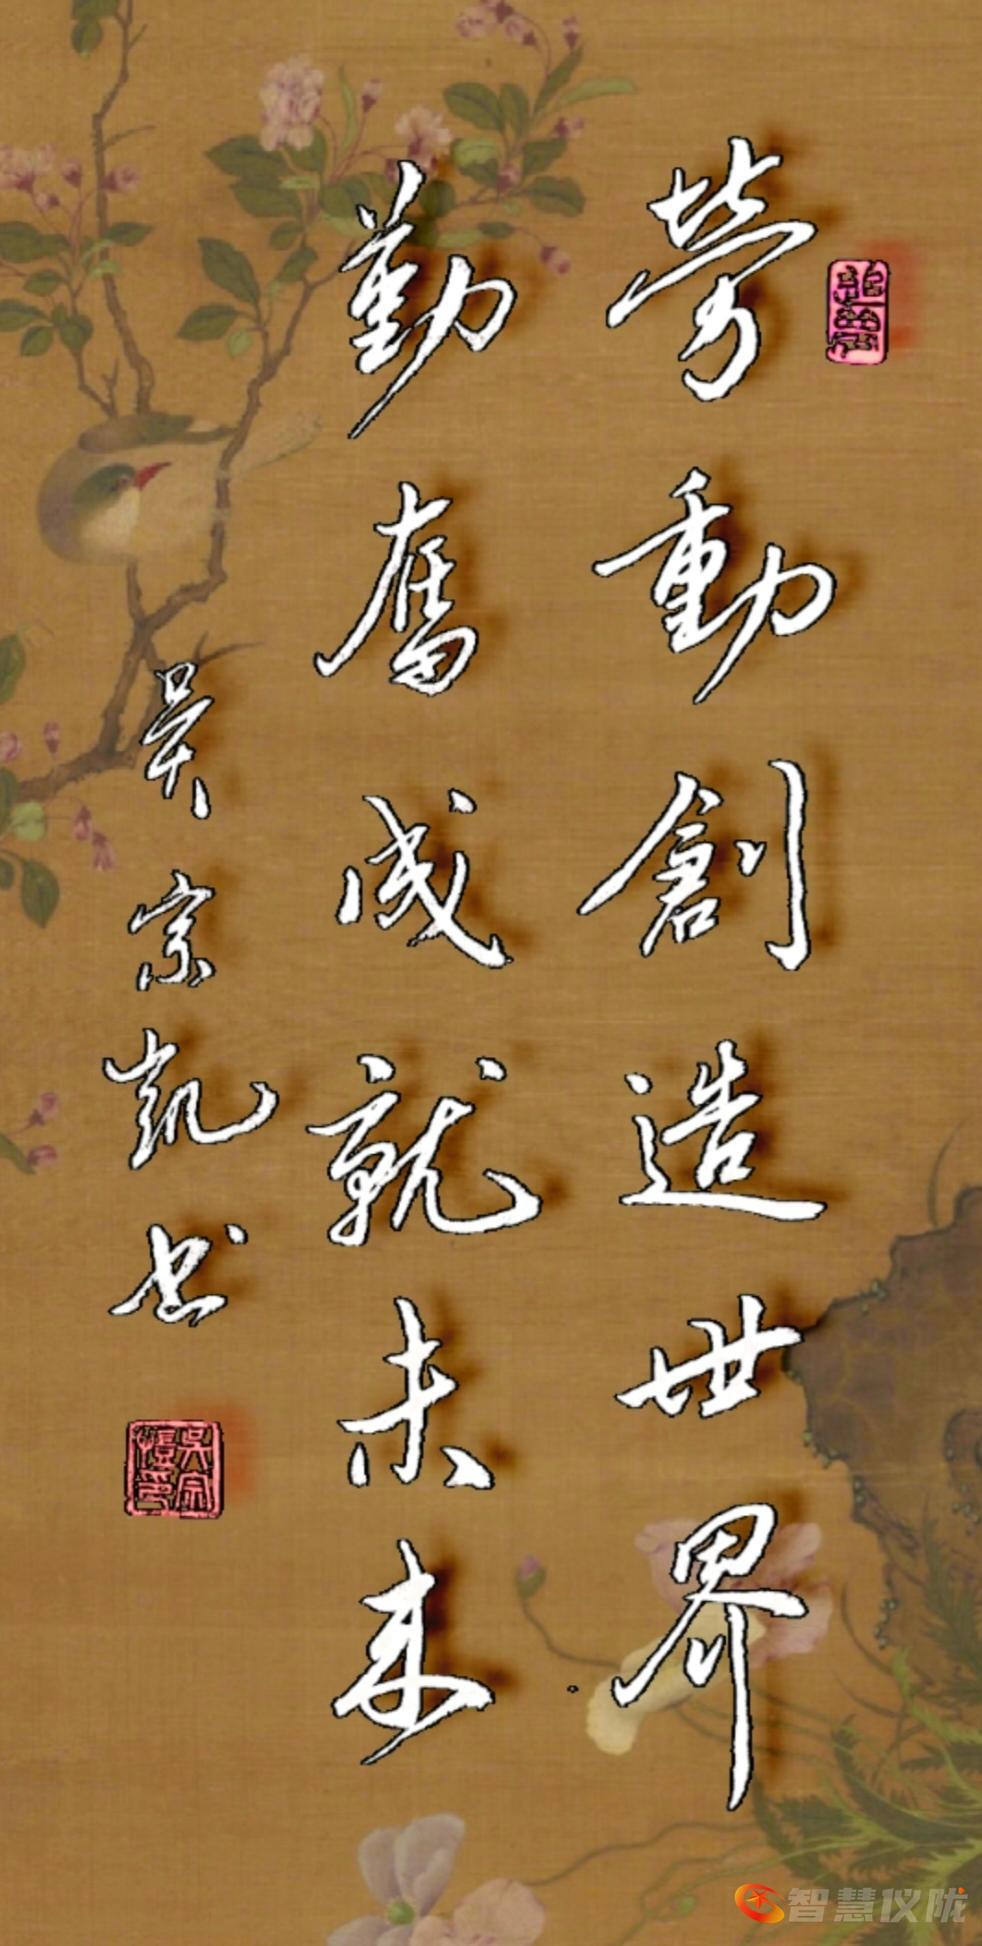 劳動創造世界
勤奮成就未来
吴宗凯书
吴宗
智慧仪陇